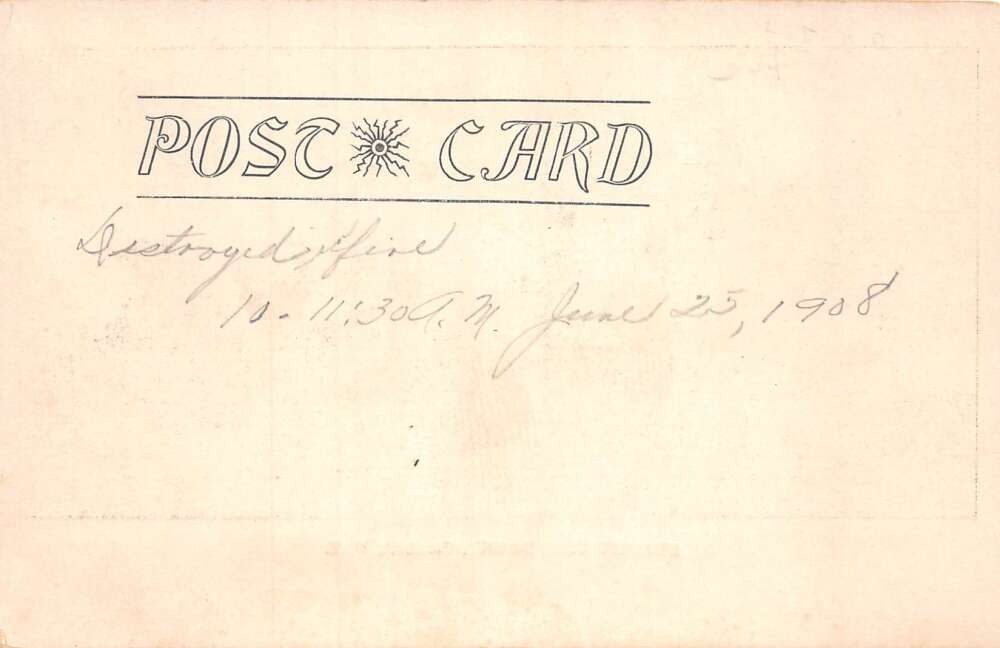 POST CARD
Destroyed fire
10 - 11:30 A.M. June 25, 1908